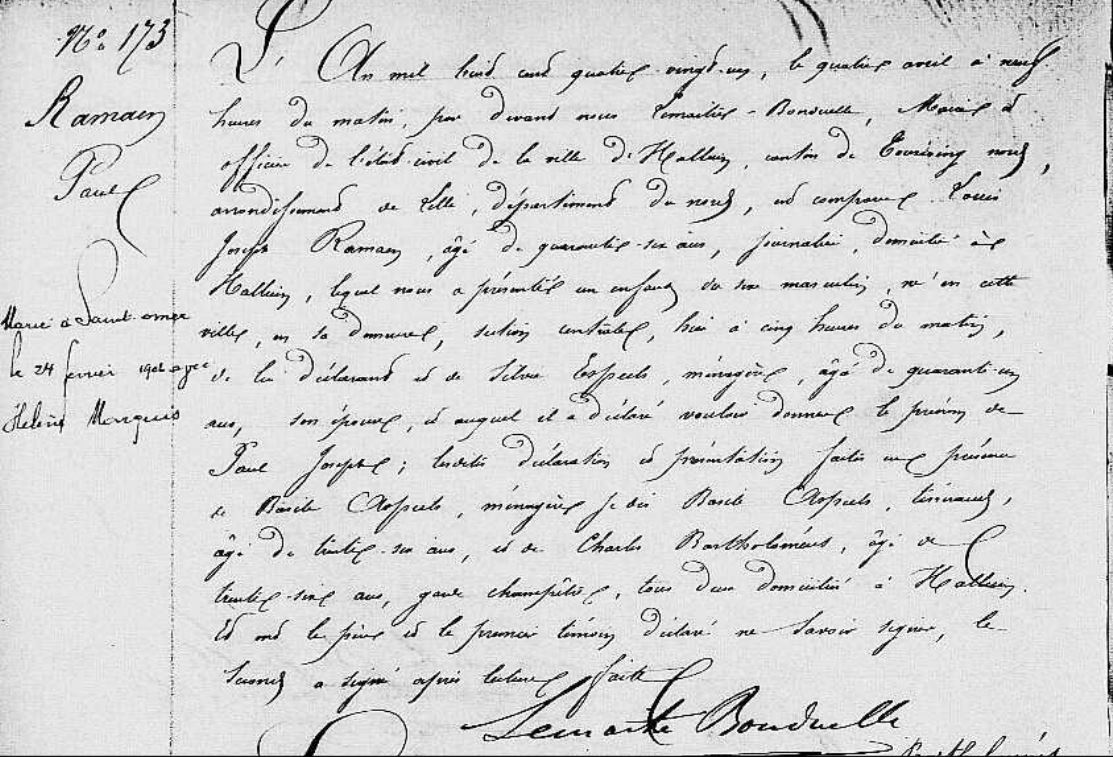 No 173
Ramaen
Paul
Marié à Saint-omer
le 24 février 1906 avec
Hélène Marquis
L'An mil huit cent quatre vingt-un, le quatre avril à neuf
heures du matin, par devant nous Lemaitre-Bonduelle, Maire et
officier de l'état-civil de la ville d'Halluin, canton de Tourcoing nord,
arrondissement de Lille, département du nord, est comparu Louis
Joseph Ramaen, âgé de quarante-six ans, journalier, domicilié à
Halluin, lequel nous a présenté un enfant du sexe masculin, né en cette
ville, en sa demeure, section centrale, hier à cinq heures du matin,
de lui déclarant et de Silvie, ménagère, âgé de quarante-un
ans, son épouse, et auquel il a déclaré vouloir donner le prénom de
Paul Joseph; lesdites déclaration et présentation faites en présence
de Basile, ménagère je dis Basile, tisserand,
âgé de trente-six ans, et de Charles Bartholoméus, âgé de
trente-six ans, garde champêtre, tous deux domiciliés à Halluin.
Et ont le père et le premier témoin déclaré ne savoir signer, le
second a signé après lecture faite
Lemaitre Bonduelle